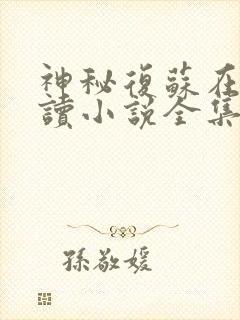 神秘復蘇在
讀小説全集
孫敬媛